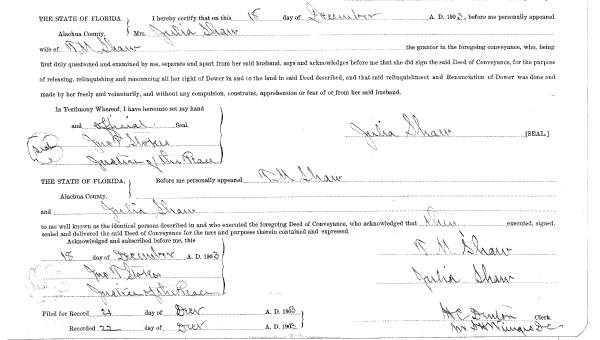 THE STATE OF FLORIDA, I hereby certify that on this 18 day of December A. D. 1903, before me personally appeared
Alachua County. Mrs. Julia Shaw
wife of T. M. Shaw the grantor in the foregoing conveyance, who, being
first duly questioned and examined by me, separate and apart from her said husband, says and acknowledges before me that she did sign the said Deed of Conveyance, for the purpose
of releasing, relinquishing and renouncing all her right of Dower in and to the land in said Deed described, and that said relinquishment and Renunciation of Dower was done and
made by her freely and voluntarily, and without any compulsion, constraint, apprehension or fear of or from her said husband.
In Testimony Whereof, I have hereunto set my hand
and official Seal.
Jno P. Stokes
Justice of the Peace
Julia Shaw [SEAL]
THE STATE OF FLORIDA, Before me personally appeared T. M Shaw
Alachua County.
and Julia Shaw
to me well known as the identical persons described in and who executed the foregoing Deed of Conveyance, who acknowledged that they executed, signed,
sealed and delivered the said Deed of Conveyance for the uses and purposes therein contained and expressed.
Acknowledged and subscribed before me, this
18 day of December A. D. 1903
Jno P. Stokes
Justice of the Peace
T. M Shaw
Julia Shaw
Filed for Record 21 day of Dec A. D. 1903
Recorded 22 day of Dec A. D. 1903
H C Denton Clerk.
D C